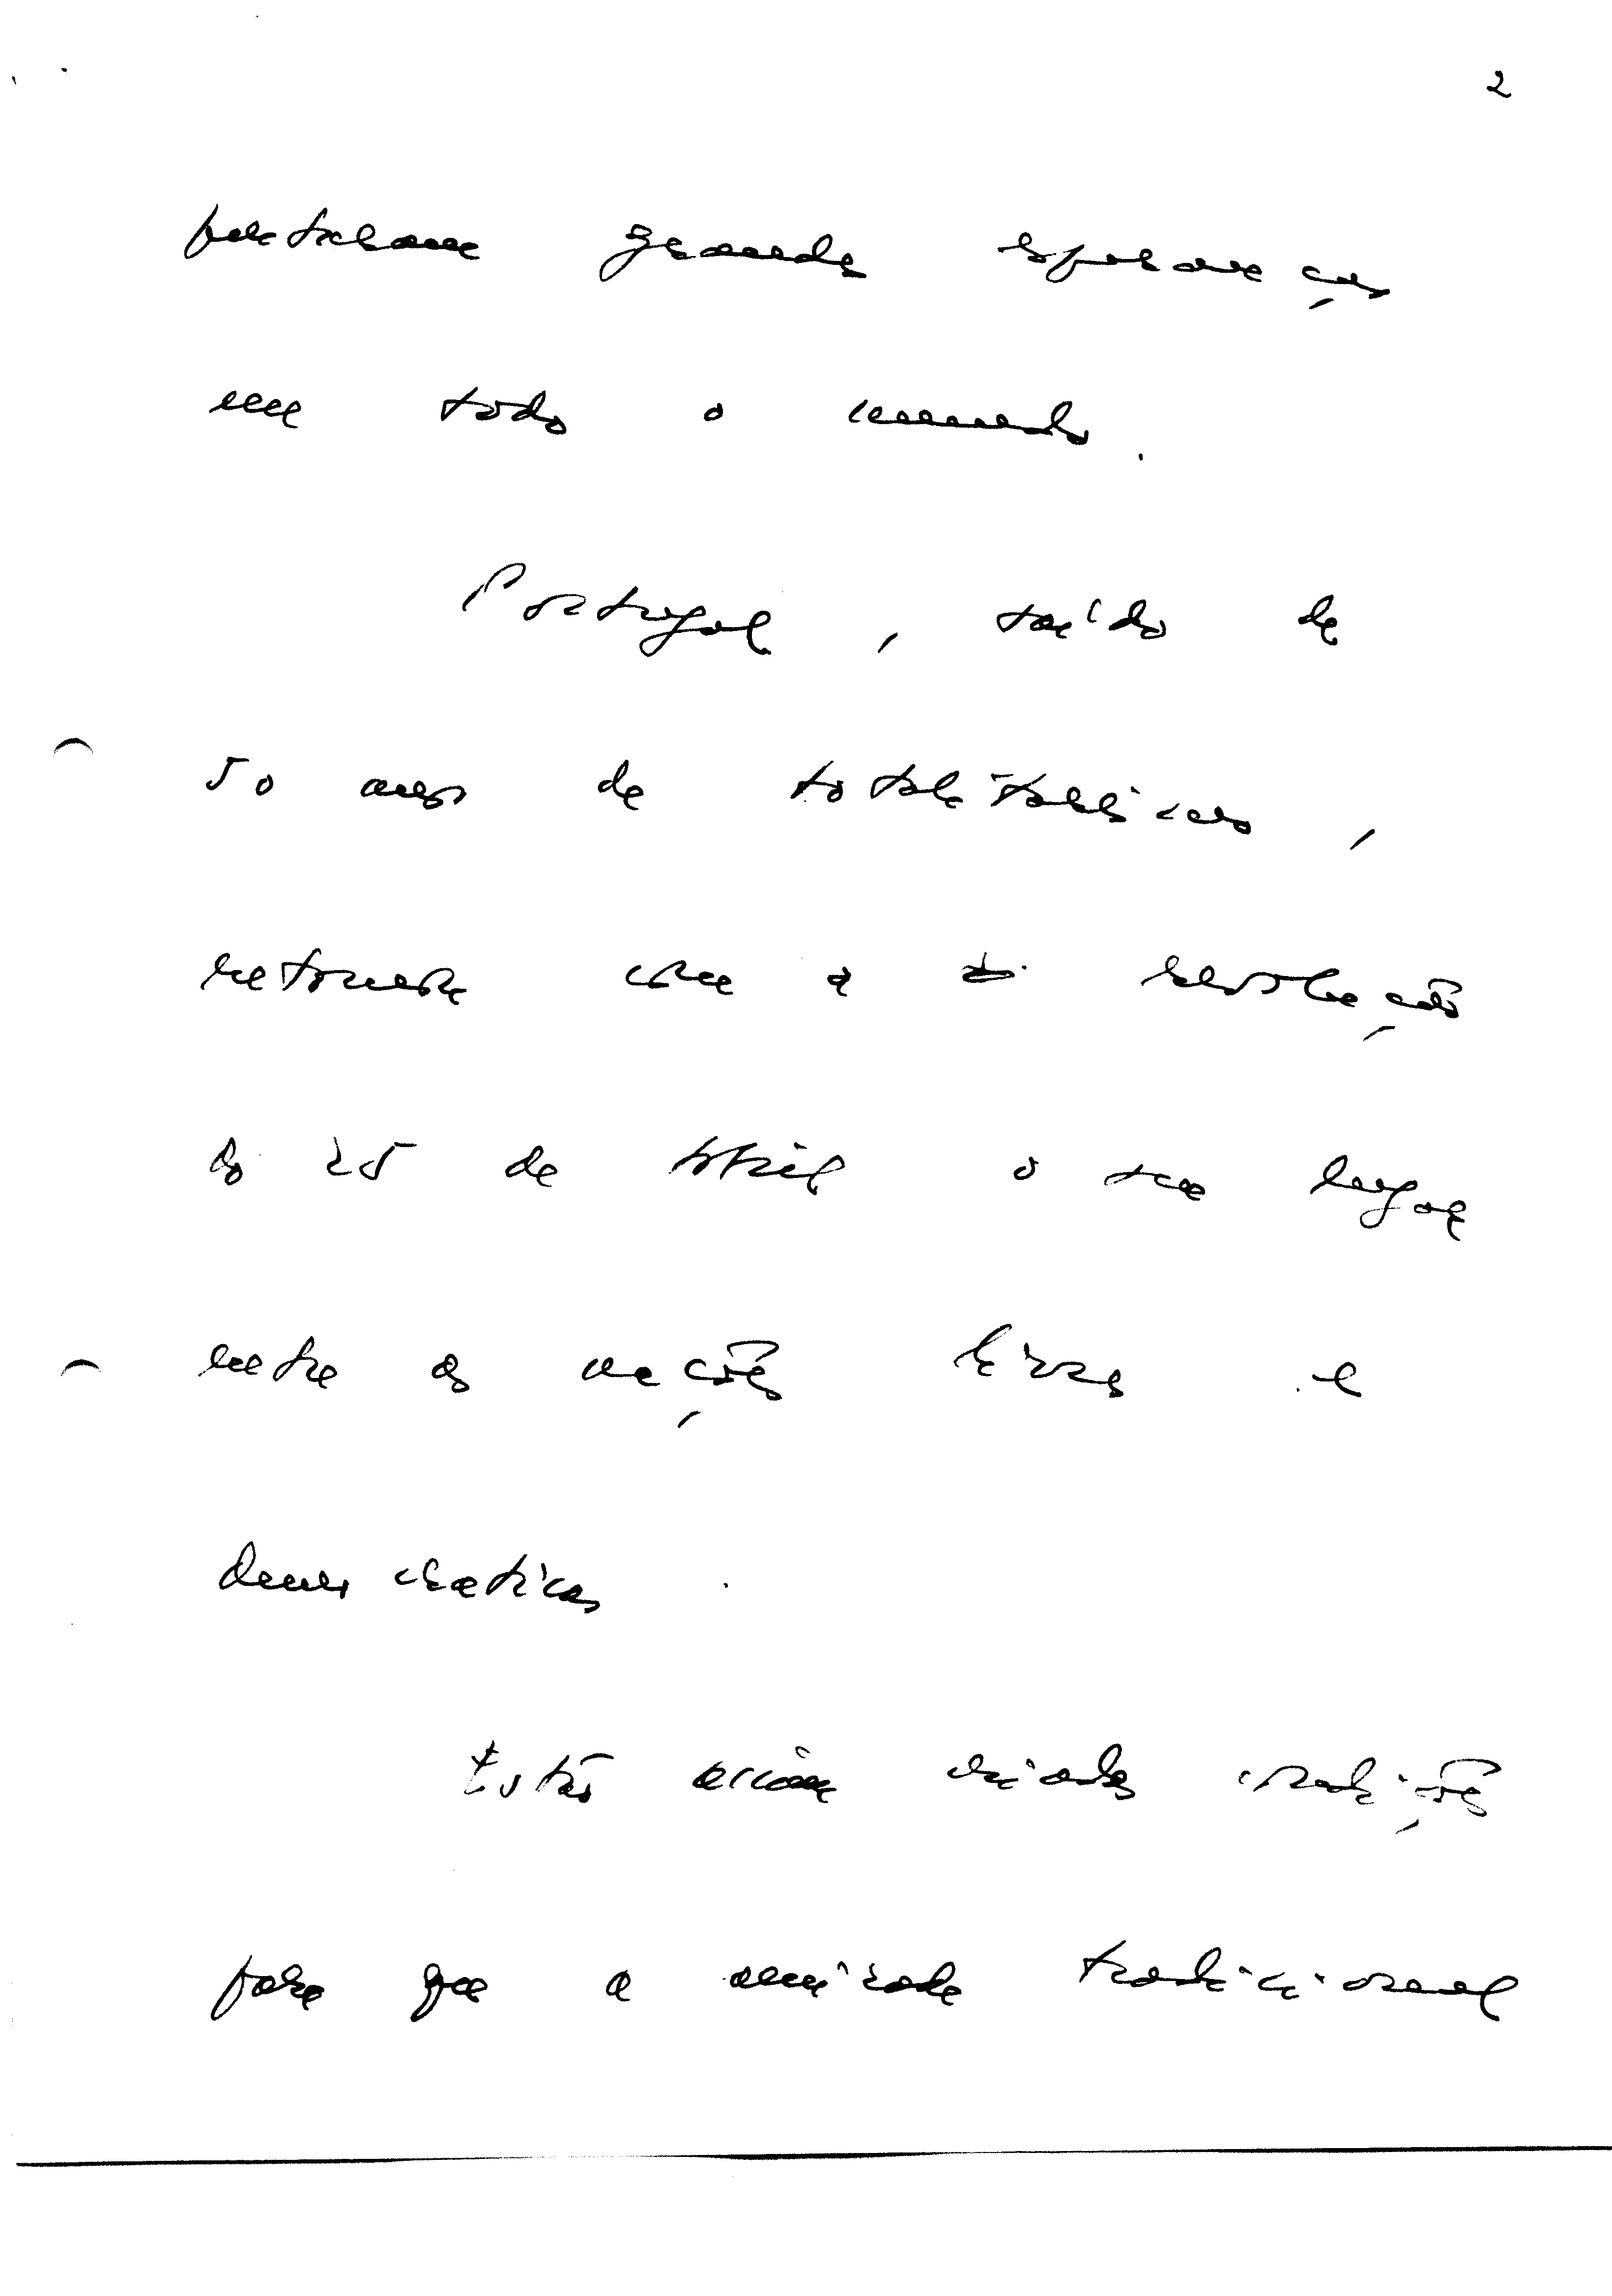 2
penetraram grandes esperanças
em todo o mundo.
Portugal, saído de
50 anos de totalitarismo,
retomou com a revolução
do 25 de Abril o seu lugar
entre as nações livres e
democráticas.
Estão assim criadas condições
para que a amizade tradicional